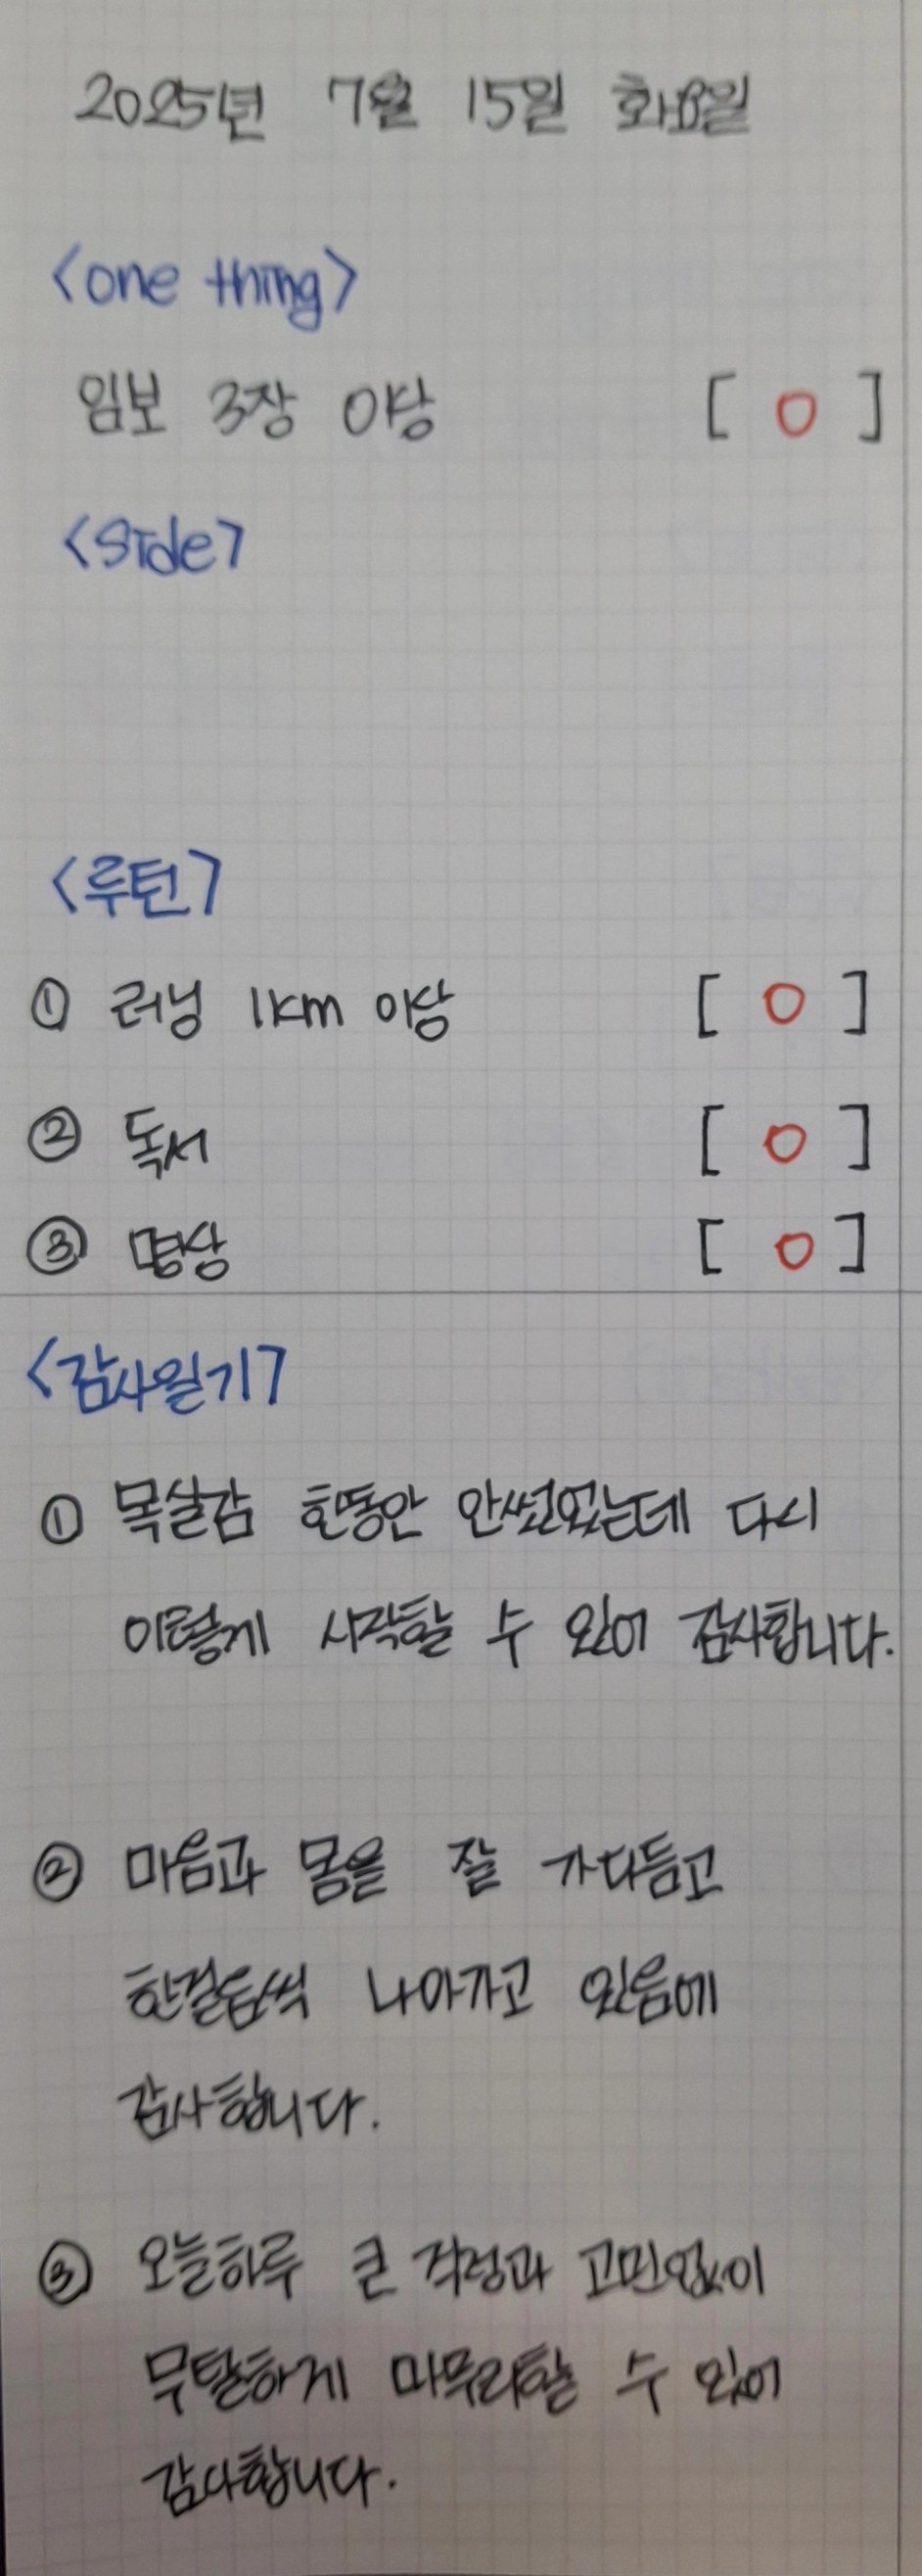 2025년 7월 15일 화요일
<one thing>
임보 3장 이상 [ O ]
<Side>
<루틴>
① 러닝 1km 이상 [ O ]
② 독서 [ O ]
③ 명상 [ O ]
<감사일기>
① 목실감 한동안 안썼었는데 다시
이렇게 시작할 수 있어 감사합니다.
② 마음과 몸을 잘 가다듬고
한걸음씩 나아가고 있음에
감사합니다.
③ 오늘하루 큰 걱정과 고민없이
무탈하게 마무리할 수 있어
감사합니다.